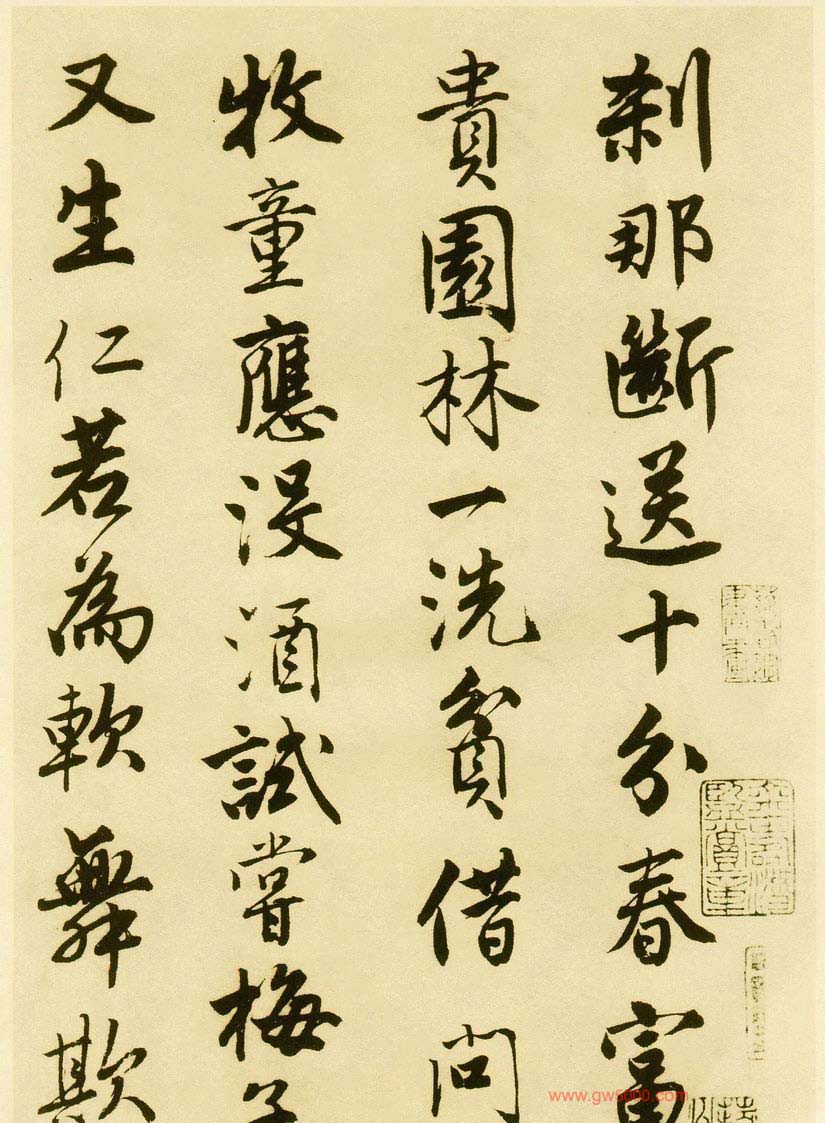 刹那断送十分春富
貴園林一洗貧借问
牧童應没酒試嘗梅子
又生仁若為軟舞欺
www.gw5000.com